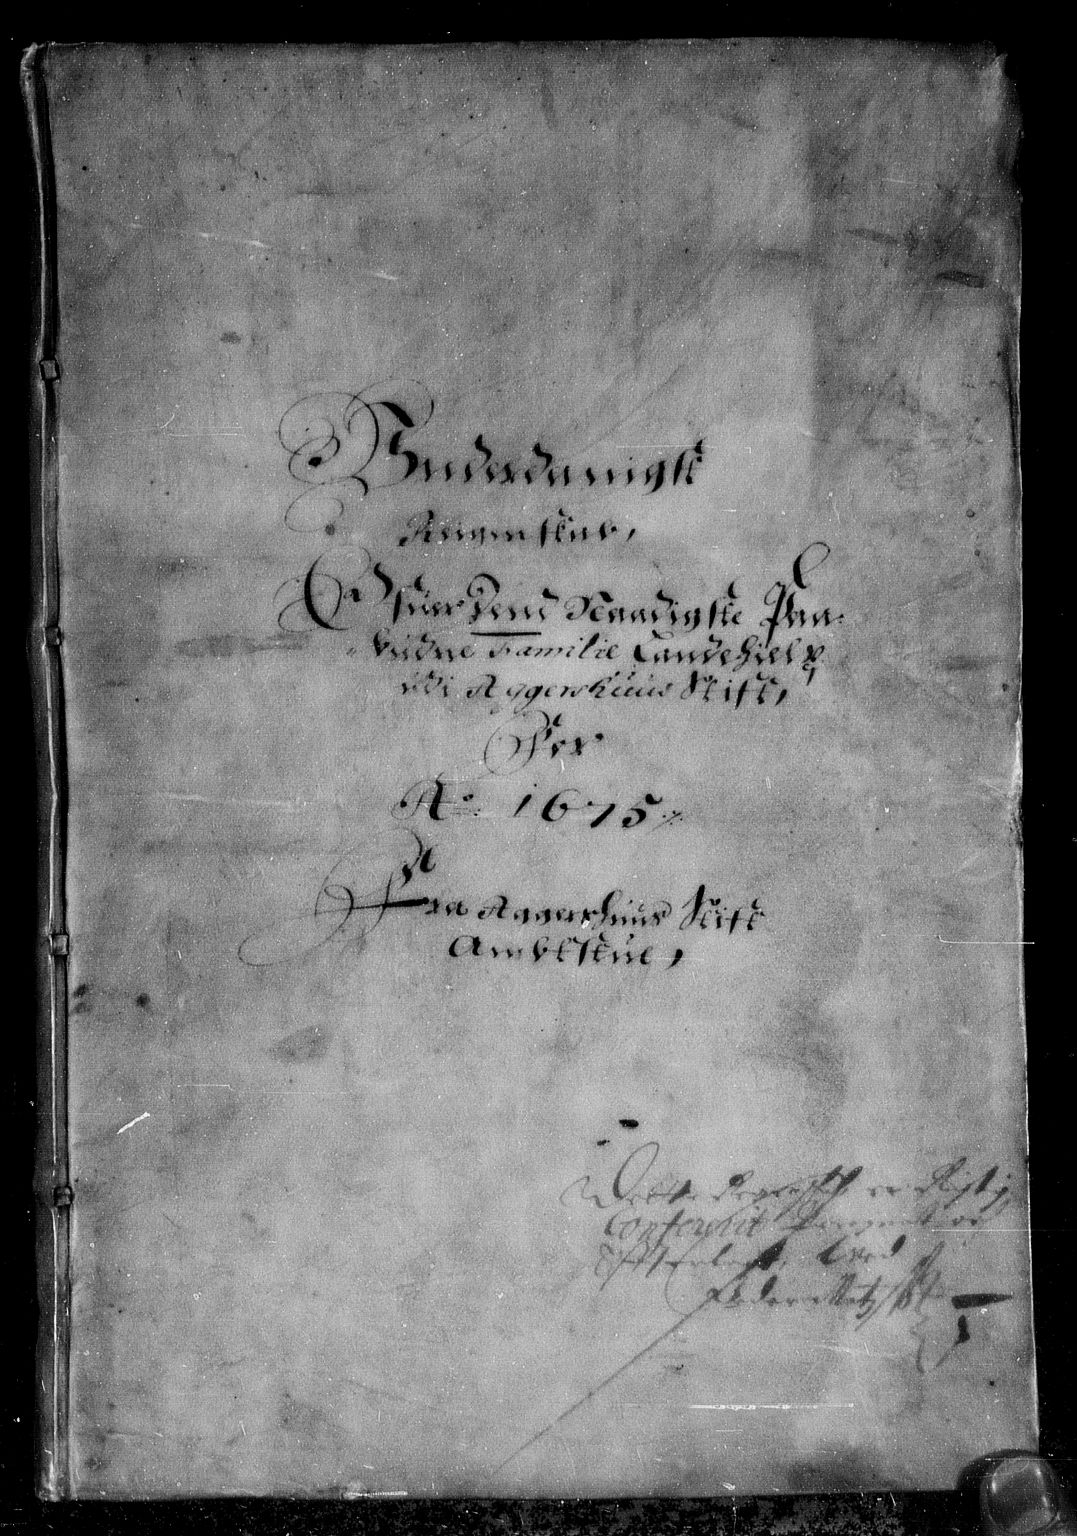 Vnderdanigst
Regenskab,
Ofuer dend Naadigste Paa-
budne Familie Landehielp
udi Aggershuus Stift,
For
Ao. 1675.
Fra Aggershuus Stift
Ambtstue,
Dette er Rigtig
Conferirit